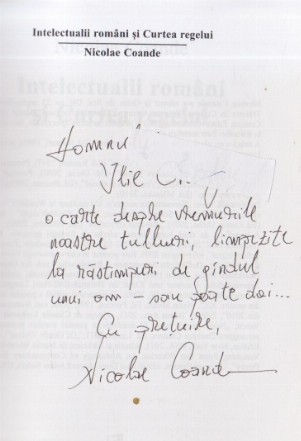 Intelectualii români și Curtea regelui
Nicolae Coande
Domnului
Ilie C...
o carte despre vremurile
noastre tulburi, limpezite
la răstimpuri de gîndul
unui om – sau poate doi...
Cu prețuire,
Nicolae Coande